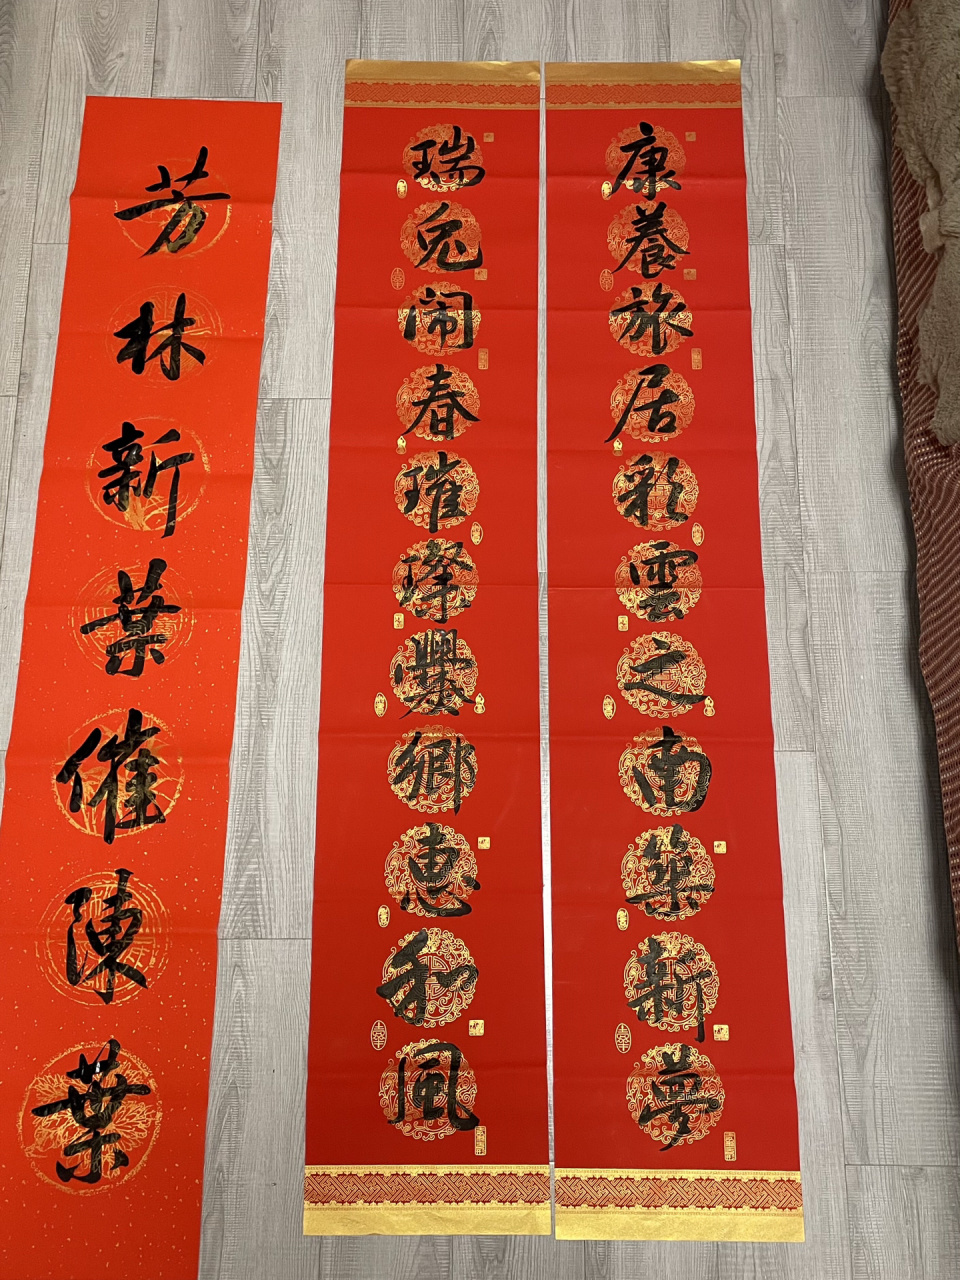 康養旅居彩雲之南築新夢
瑞兔闹春璀璨爨鄉惠和風
芳林新葉催陳葉